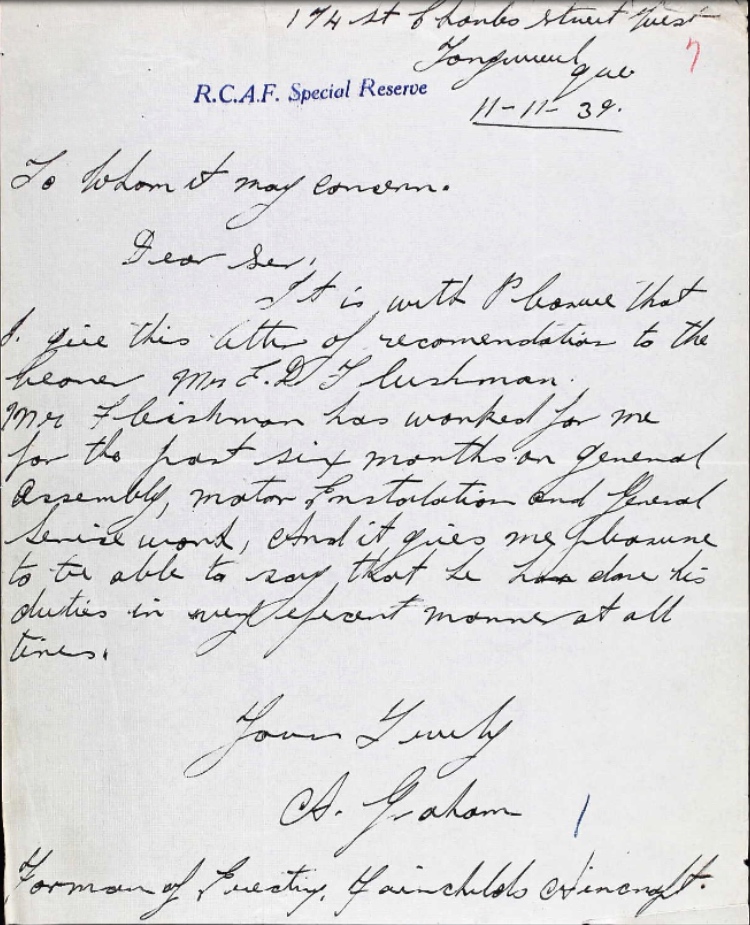 174 St Charles Street West
7
Longueuil
Que
R.C.A.F. Special Reserve
11-11-39.
To Whom it may concern.
Dear Sir,
It is with Pleasure that
I. give this letter of recomendation to the
bearer Mr F. D Fleishman.
Mr Fleishman has worked for me
for the past six months on general
Assembly, motor Instalation and General
Service work, And it gives me pleasure
to be able to say that he has done his
duties in very eficent manner at all
times.
Yours Truely
A. Graham
Forman of Erecting. Fairchilds Aircraft.